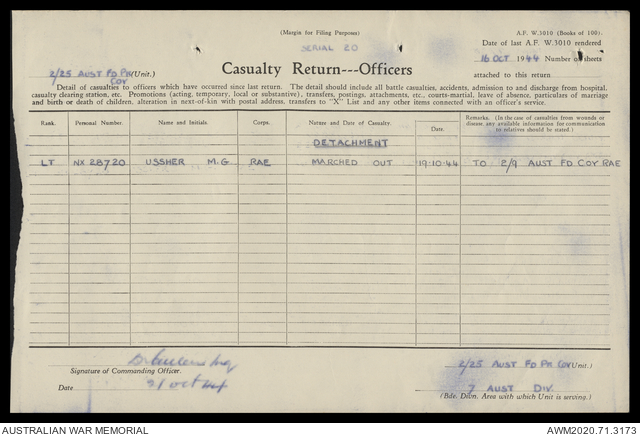 (Margin for Filing Purposes)
A.F. W.3010 (Books of 100).
SERIAL 20
Date of last A.F. W.3010 rendered
16 OCT 1944 Number of sheets
attached to this return
2/25 AUST FD PK COY (Unit.)
Casualty Return---Officers
Detail of casualties to officers which have occurred since last return. The detail should include all battle casualties, accidents, admission to and discharge from hospital,
casualty clearing station, etc. Promotions (acting, temporary, local or substantive), transfers, postings, attachments, etc., courts-martial, leave of absence, particulars of marriage
and birth or death of children, alteration in next-of-kin with postal address, transfers to "X" List and any other items connected with an officer's service.
Rank. Personal Number. Name and Initials. Corps. Nature and Date of Casualty. Date. Remarks. (In the case of casualties from wounds or
disease any available information for communication
to relatives should be stated.)
DETACHMENT
LT NX 28720 USSHER M.G RAE MARCHED OUT 19-10-44 TO 2/9 AUST FD COY RAE
Signature of Commanding Officer.
Date 21 Oct 44
2/25 AUST FD PK COY (Unit.)
7 AUST DIV.
(Bde. Divn. Area with which Unit is serving.)
AUSTRALIAN WAR MEMORIAL
AWM2020.71.3173